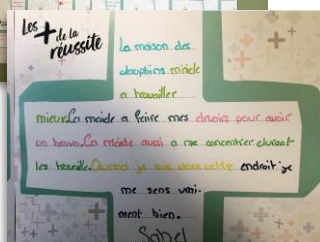 Les + de la
réussite
La maison des
dauphins m'aide
a travailler
mieux. Ca m'aide a faire mes devoirs pour avoir
un bravo. Ca m'aide aussi a me concentrer durant
les travaille. Quand je suis dans cette endroit je
me sens vrai-
ment bien.